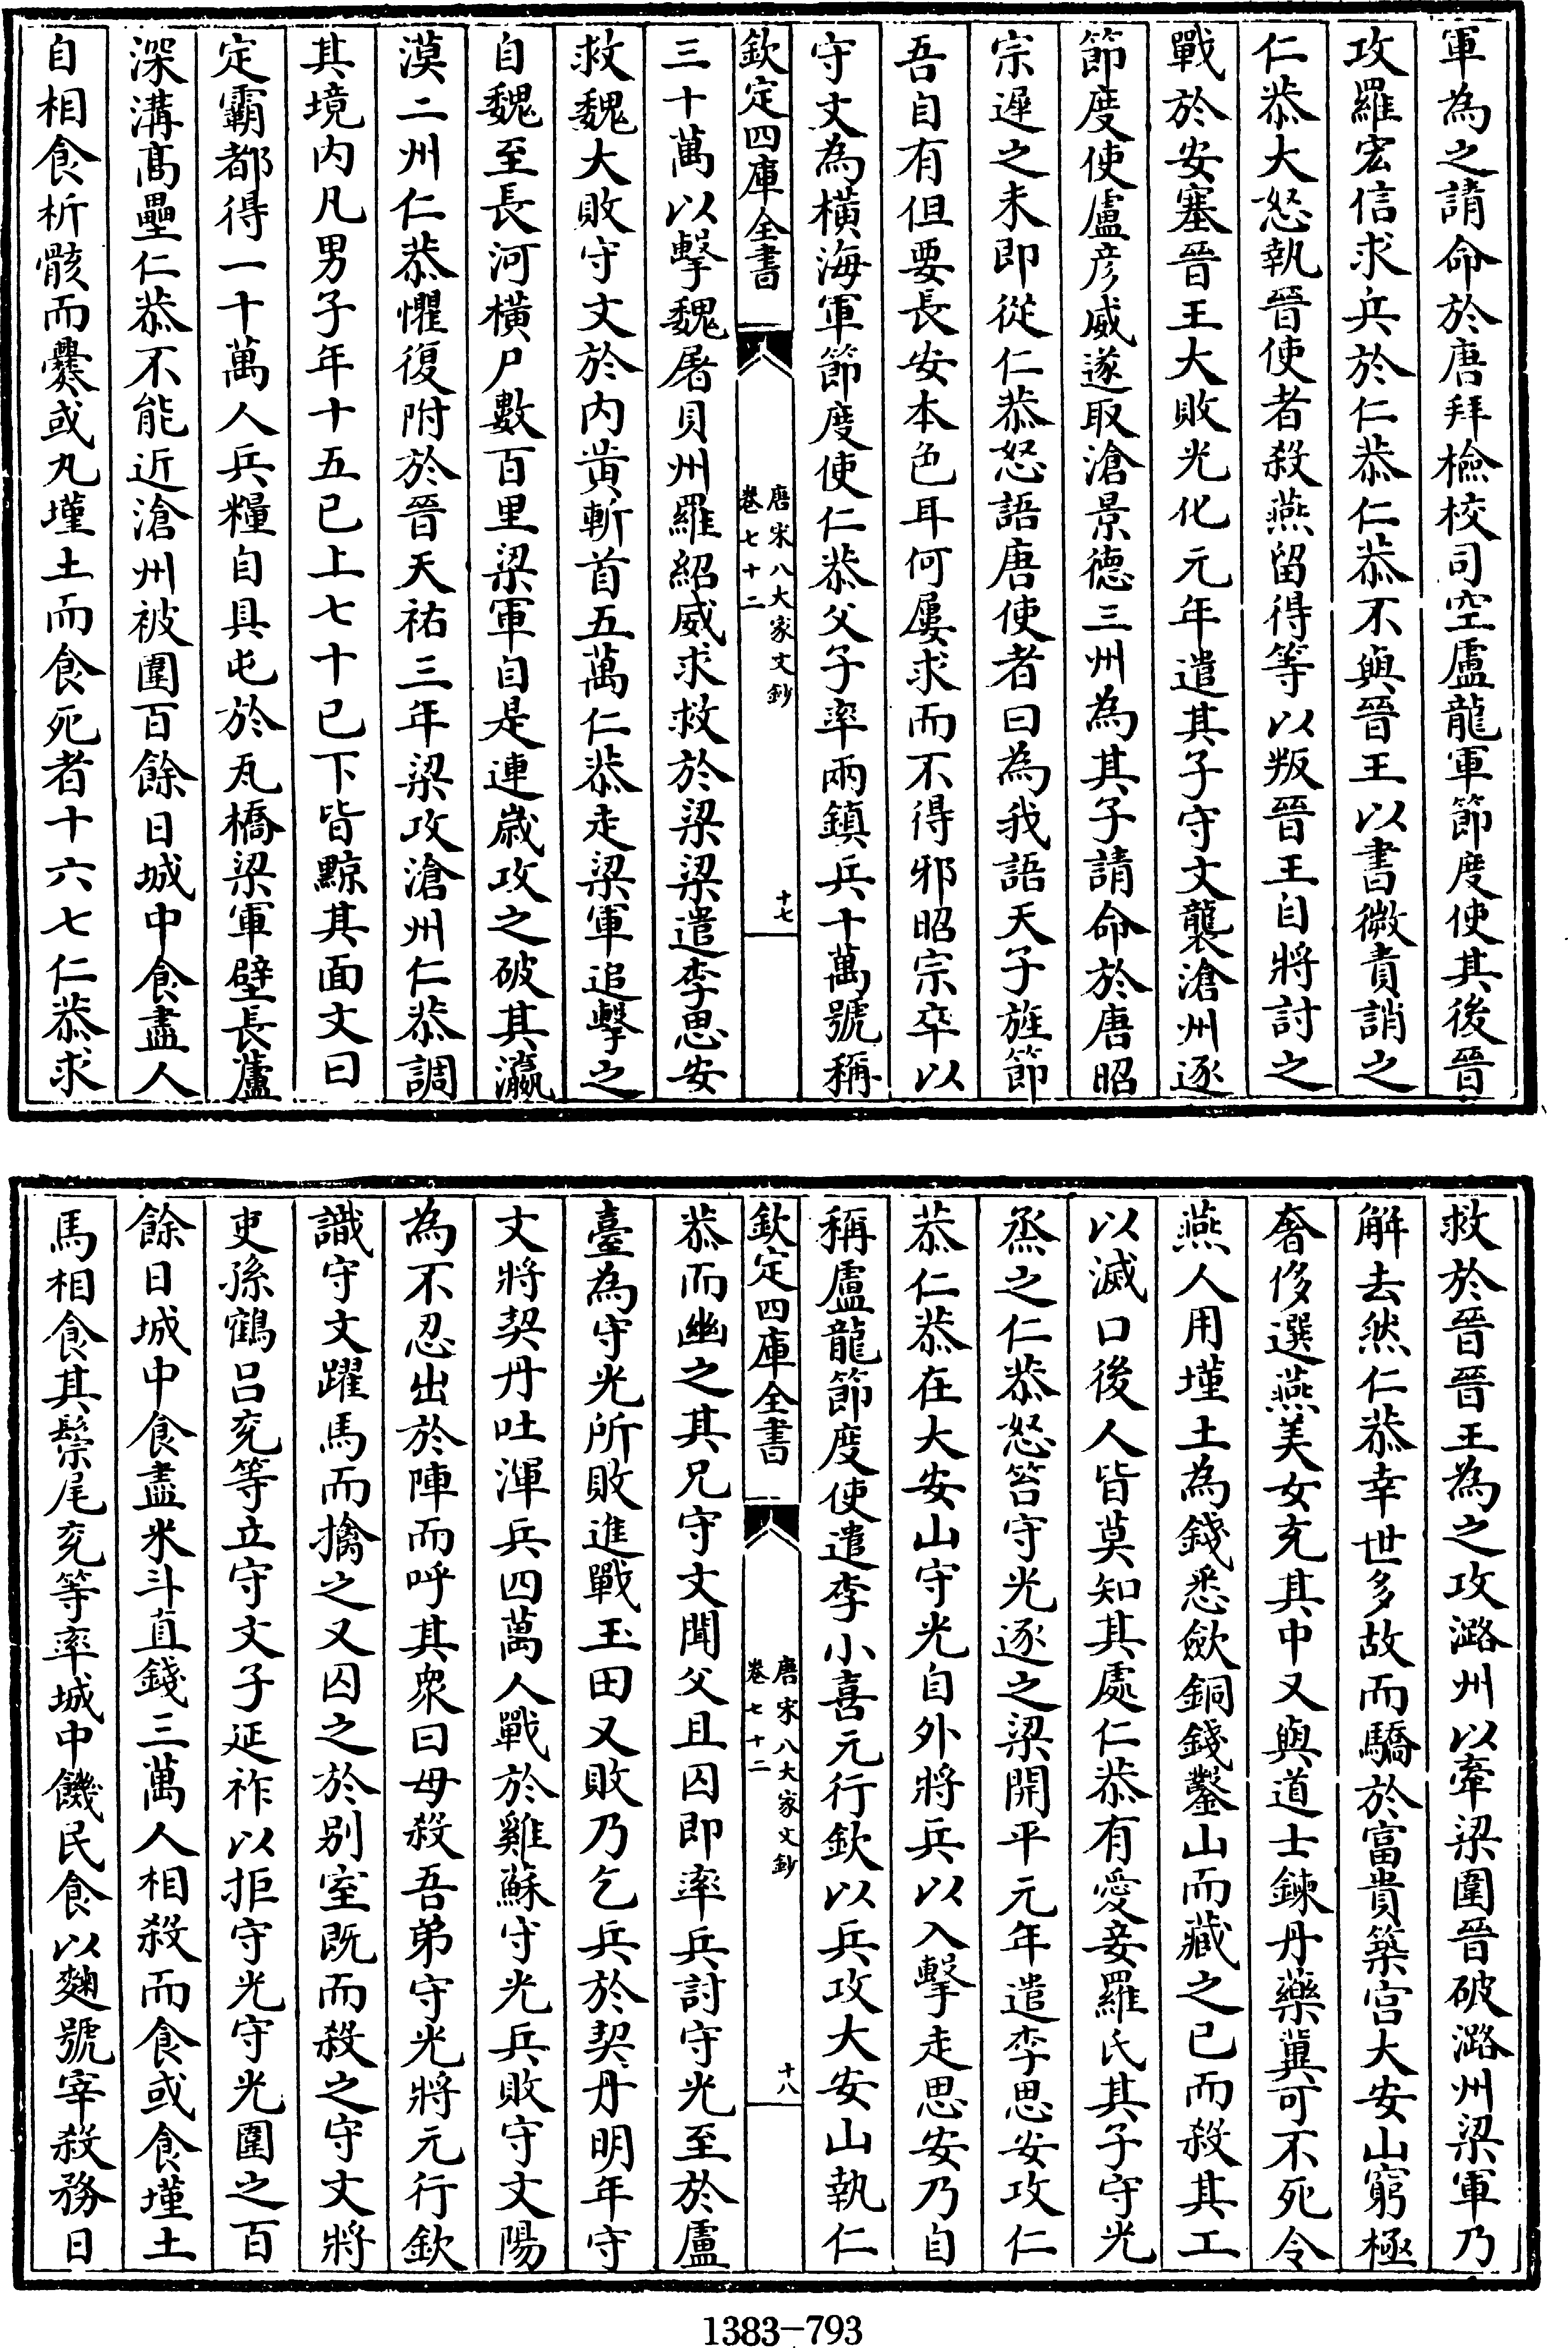 軍為之請命於唐拜檢校司空盧龍軍節度使其後晉
攻羅宏信求兵於仁恭仁恭不與晉王以書微責誚之
仁恭大怒執晉使者殺燕留得等以叛晉王自將討之
戰於安塞晉王大敗光化元年遣其子守文襲滄州逐
節度使盧彦威遂取滄景德三州為其子請命於唐昭
宗遲之未即從仁恭怒語唐使者曰為我語天子旌節
吾自有但要長安本色耳何屢求而不得邪昭宗卒以
守文為橫海軍節度使仁恭父子率兩鎮兵十萬號稱
欽定四庫全書
唐宋八大家文鈔
卷七十二
十七
三十萬以擊魏屠貝州羅紹威求救於梁梁遣李思安
救魏大敗守文於内黄斬首五萬仁恭走梁軍追擊之
自魏至長河橫尸數百里梁軍自是連歲攻之破其瀛
漠二州仁恭懼復附於晉天祐三年梁攻滄州仁恭調
其境内凡男子年十五已上七十已下皆黥其面文曰
定霸都得一十萬人兵糧自具屯於瓦橋梁軍壁長蘆
深溝髙壘仁恭不能近滄州被圍百餘日城中食盡人
自相食析骸而爨或丸墐土而食死者十六七仁恭求
救於晉晉王為之攻潞州以牽梁圍晉破潞州梁軍乃
解去然仁恭幸世多故而驕於富貴築宫大安山窮極
奢侈選燕美女充其中又與道士鍊丹藥冀可不死令
燕人用墐土為錢悉斂銅錢鑿山而藏之已而殺其工
以滅口後人皆莫知其處仁恭有愛妾羅氏其子守光
烝之仁恭怒笞守光逐之梁開平元年遣李思安攻仁
恭仁恭在大安山守光自外將兵以入擊走思安乃自
稱盧龍節度使遣李小喜元行欽以兵攻大安山執仁
欽定四庫全書
唐宋八大家文鈔
卷七十二
十八
恭而幽之其兄守文聞父且囚即率兵討守光至於盧
臺為守光所敗進戰玉田又敗乃乞兵於契丹明年守
文將契丹吐渾兵四萬人戰於雞蘇守光兵敗守文陽
為不忍出於陣而呼其衆曰母殺吾弟守光將元行欽
識守文躍馬而擒之又囚之於别室既而殺之守文將
吏孫鶴吕兖等立守文子延祚以拒守光守光圍之百
餘日城中食盡米斗直錢三萬人相殺而食或食墐土
馬相食其騣尾兖等率城中饑民食以麴號宰殺務日
1383-793